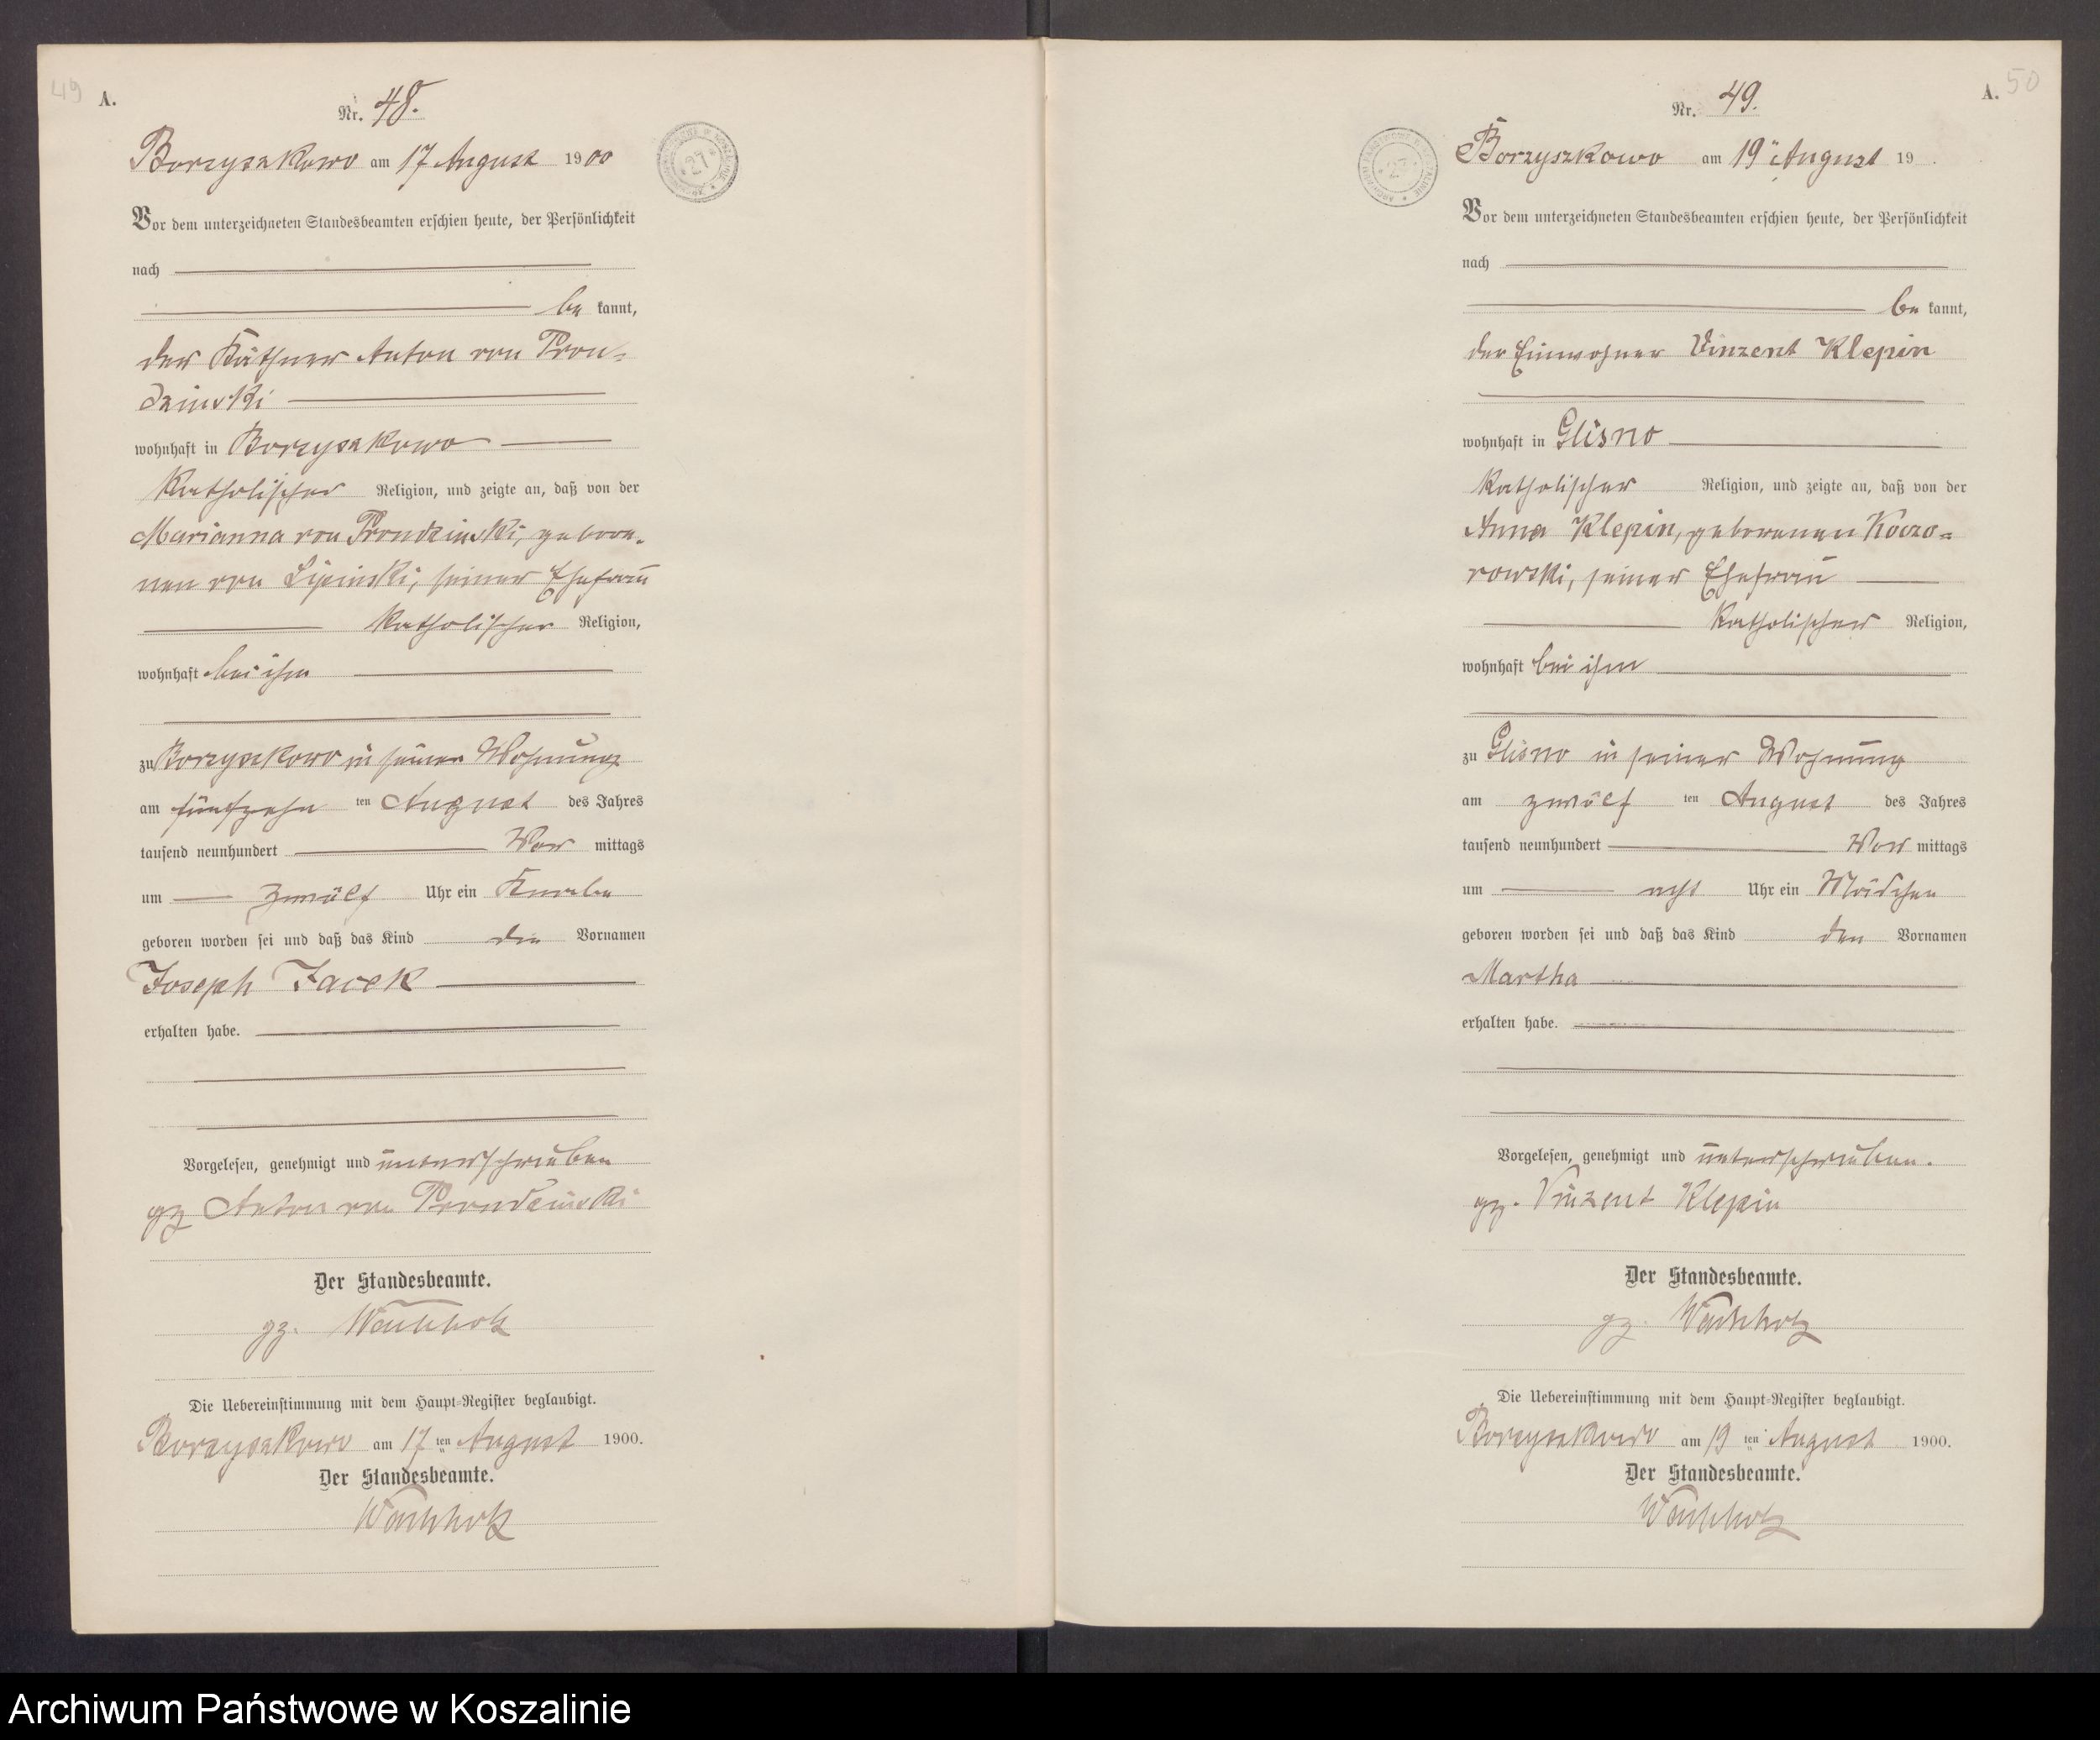 49
A.
Nr. 48.
Borzyszkowo am 17 August 1900
Vor dem unterzeichneten Standesbeamten erschien heute, der Persönlichkeit
nach
be kannt,
der Käthner Anton von Pron-
dzinski
wohnhaft in Borzyszkowo
katholischer Religion, und zeigte an, daß von der
Marianna von Prondzinski, gebore-
nen von Lipinski, seiner Ehefrau
katholischer Religion,
wohnhaft bei ihm
zu Borzyszkowo in seiner Wohnung
am fünfzehn ten August des Jahres
tausend neunhundert Vor mittags
um zwölf Uhr ein Knabe
geboren worden sei und daß das Kind die Vornamen
Joseph Jacek
erhalten habe.
Vorgelesen, genehmigt und unterschrieben
gz Anton von Prondzinski
Der Standesbeamte.
gz.
Die Uebereinstimmung mit dem Haupt-Register beglaubigt.
Borzyszkowo am 17 ten August 1900.
Der Standesbeamte.
A. 50
Nr. 49.
Borzyszkowo am 19 August 19 .
Vor dem unterzeichneten Standesbeamten erschien heute, der Persönlichkeit
nach
be kannt,
der Einwohner Vinzent Klepin
wohnhaft in Glisno
katholischer Religion, und zeigte an, daß von der
Anna Klepin, geborenen Koczo-
rowski, seiner Ehefrau
katholischer Religion,
wohnhaft bei ihm
zu Glisno in seiner Wohnung
am zwölf ten August des Jahres
tausend neunhundert Vor mittags
um acht Uhr ein Mädchen
geboren worden sei und daß das Kind den Vornamen
Martha
erhalten habe.
Vorgelesen, genehmigt und unterschrieben.
gz. Vinzent Klepin
Der Standesbeamte.
gz.
Die Uebereinstimmung mit dem Haupt-Register beglaubigt.
Borzyszkowo am 19 ten August 1900.
Der Standesbeamte.
Archiwum Państwowe w Koszalinie